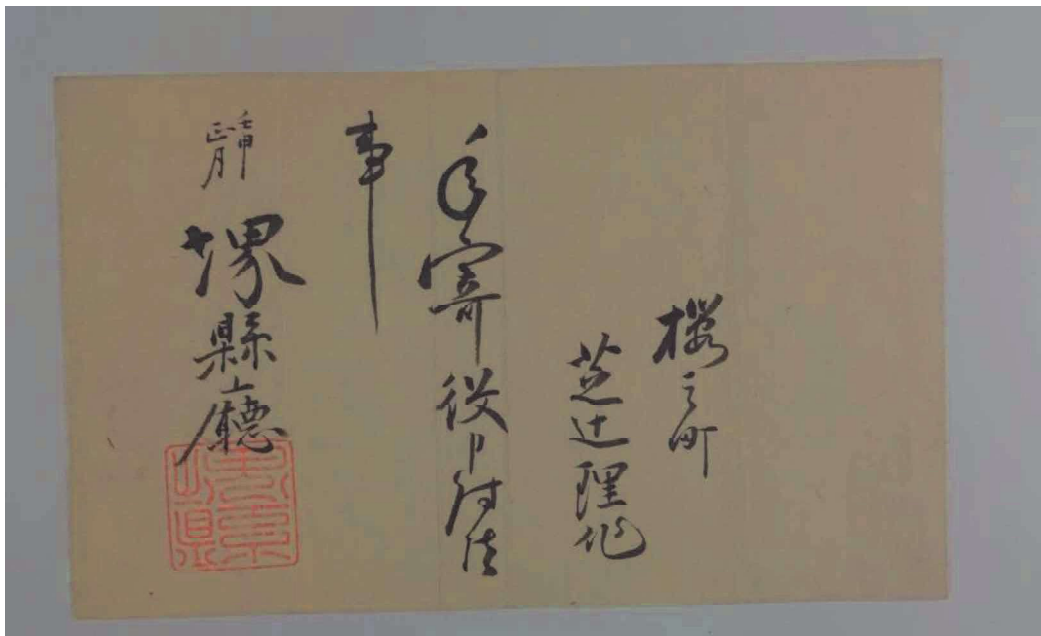 櫻之町
芝辻理作
年寄役申付候
事
壬申
正月
堺縣廳